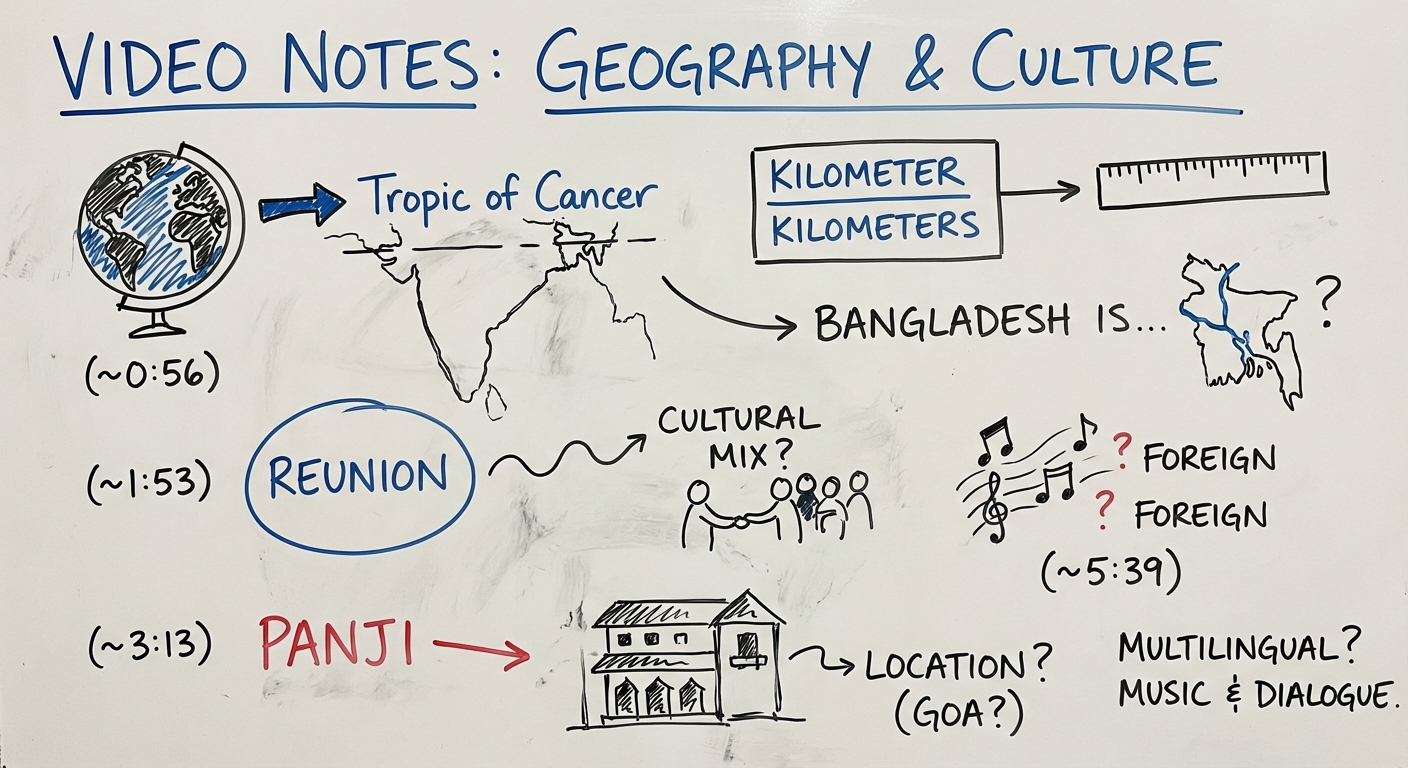 VIDEO NOTES: GEOGRAPHY & CULTURE
Tropic of Cancer
KILOMETER
KILOMETERS
(~0:56)
BANGLADESH IS...
?
(~1:53)
REUNION
CULTURAL
MIX?
? FOREIGN
? FOREIGN
(~5:39)
(~3:13)
PANJI
LOCATION?
(GOA?)
MULTILINGUAL?
MUSIC & DIALOGUE.